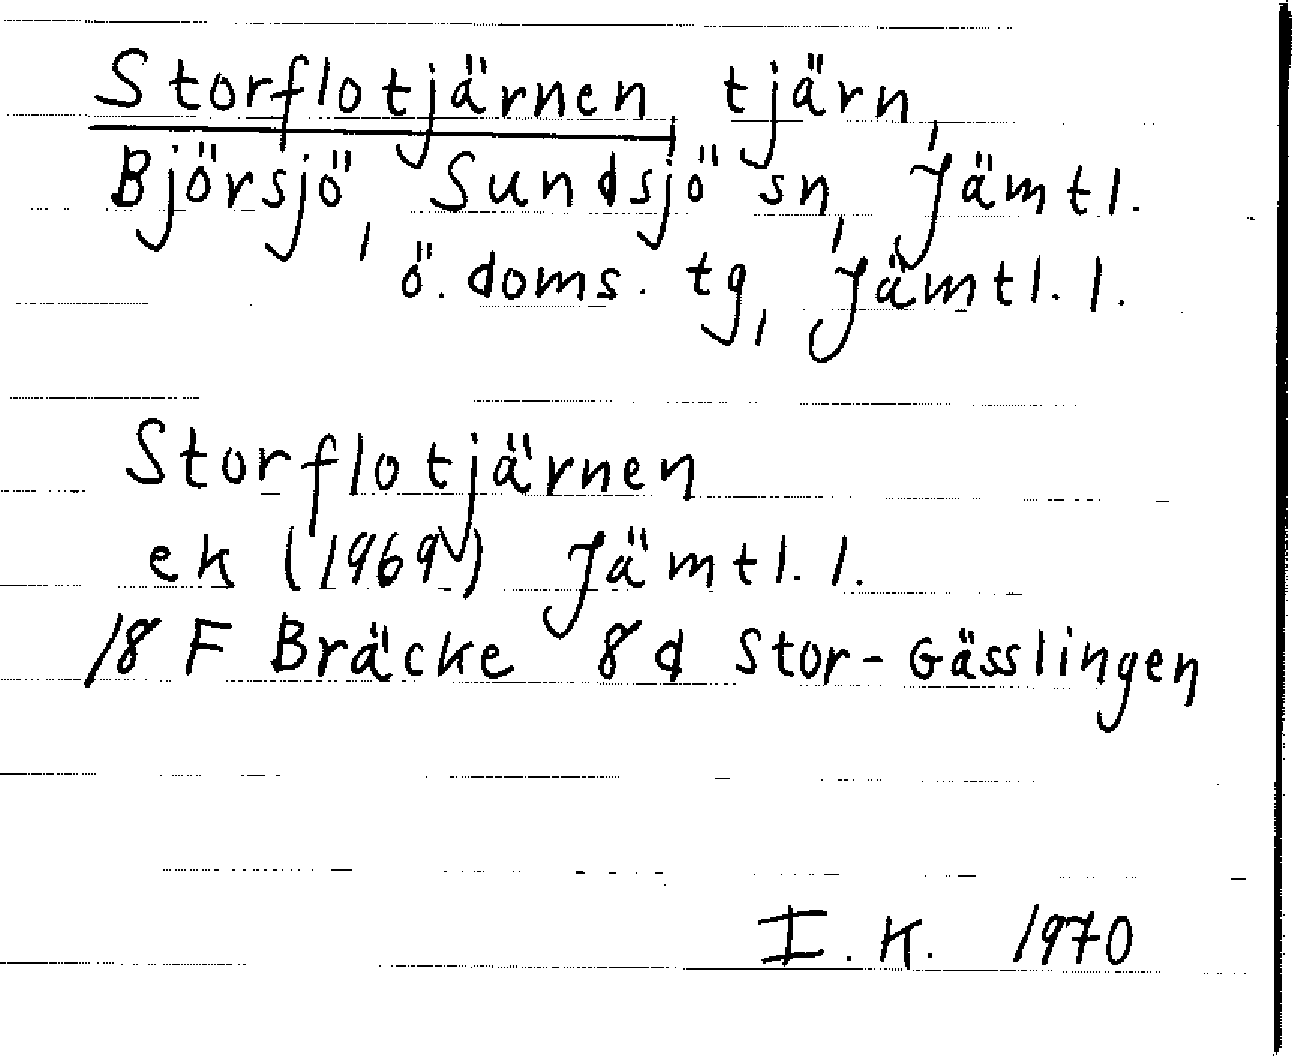 Storflotjärnen, tjärn,
Björsjö, Sundsjö sn, Jämtl.
ö. doms. tg, Jämtl. l.
Storflotjärnen
ek (1969) Jämtl. l.
18 F Bräcke 8 d Stor-Gässlingen
I. K. 1970